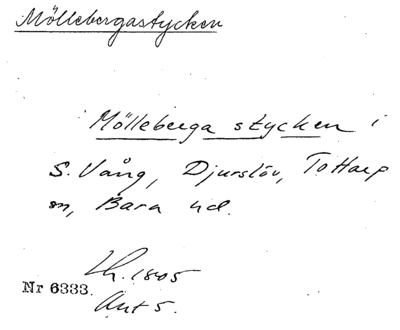 Möllebergastycken
Mölleberga stycken i
S. Vång, Djurslöv, Tottarp
sn, Bara hd.
Lh. 1805
Nr 6333.
Akt 5.